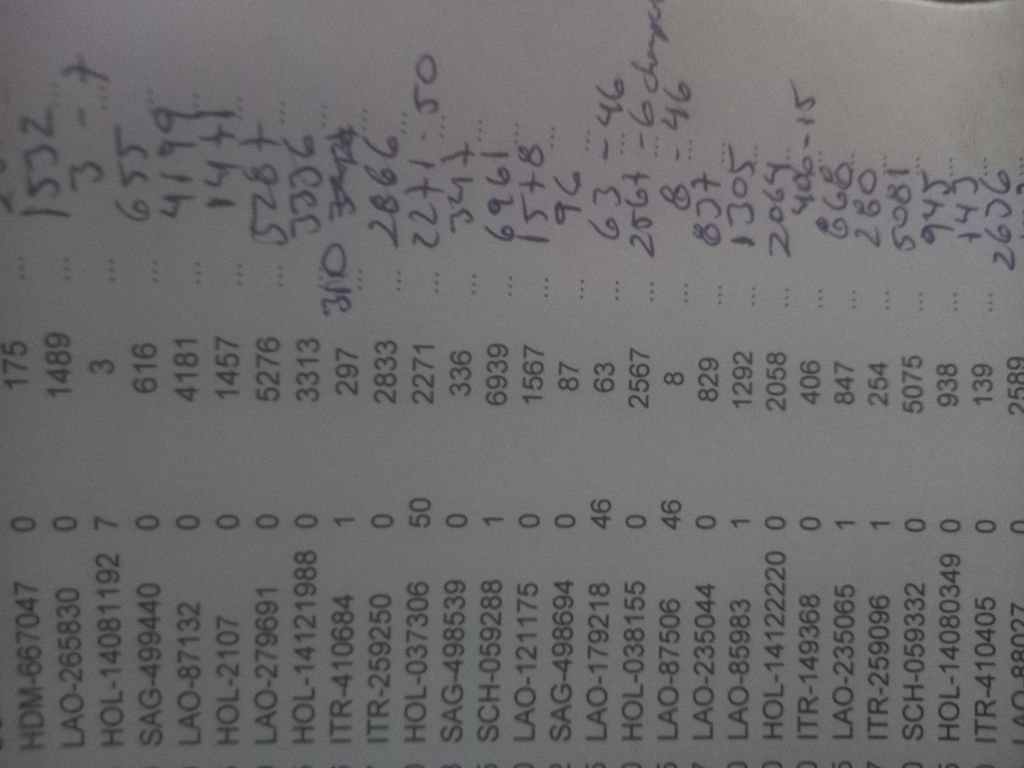 HDM-667047 0 175 ...
LAO-265830 0 1489 ... 1532
HOL-14081192 7 3 ... 3 - 7
SAG-499440 0 616 ... 655
LAO-87132 0 4181 ... 4199
HOL-2107 0 1457 ... 1471
LAO-279691 0 5276 ... 5287
HOL-14121988 0 3313 ... 3336
ITR-410684 1 297 ... 310
ITR-259250 0 2833 ... 2866
HOL-037306 50 2271 ... 2271 - 50
SAG-498539 0 336 ... 347
SCH-059288 1 6939 ... 6961
LAO-121175 0 1567 ... 1578
SAG-498694 0 87 ... 96
LAO-179218 46 63 ... 63 - 46
HOL-038155 0 2567 ... 2567 - 6
LAO-87506 46 8 ... 8 - 46
LAO-235044 0 829 ... 837
LAO-85983 1 1292 ... 1305
HOL-14122220 0 2058 ... 2064
ITR-149368 0 406 ... 406 - 15
LAO-235065 1 847 ... 868
ITR-259096 1 254 ... 280
SCH-059332 0 5075 ... 5081
HOL-14080349 0 938 ... 945
ITR-410405 0 139 ... 143
LAO-88027 0 2589 ... 2606